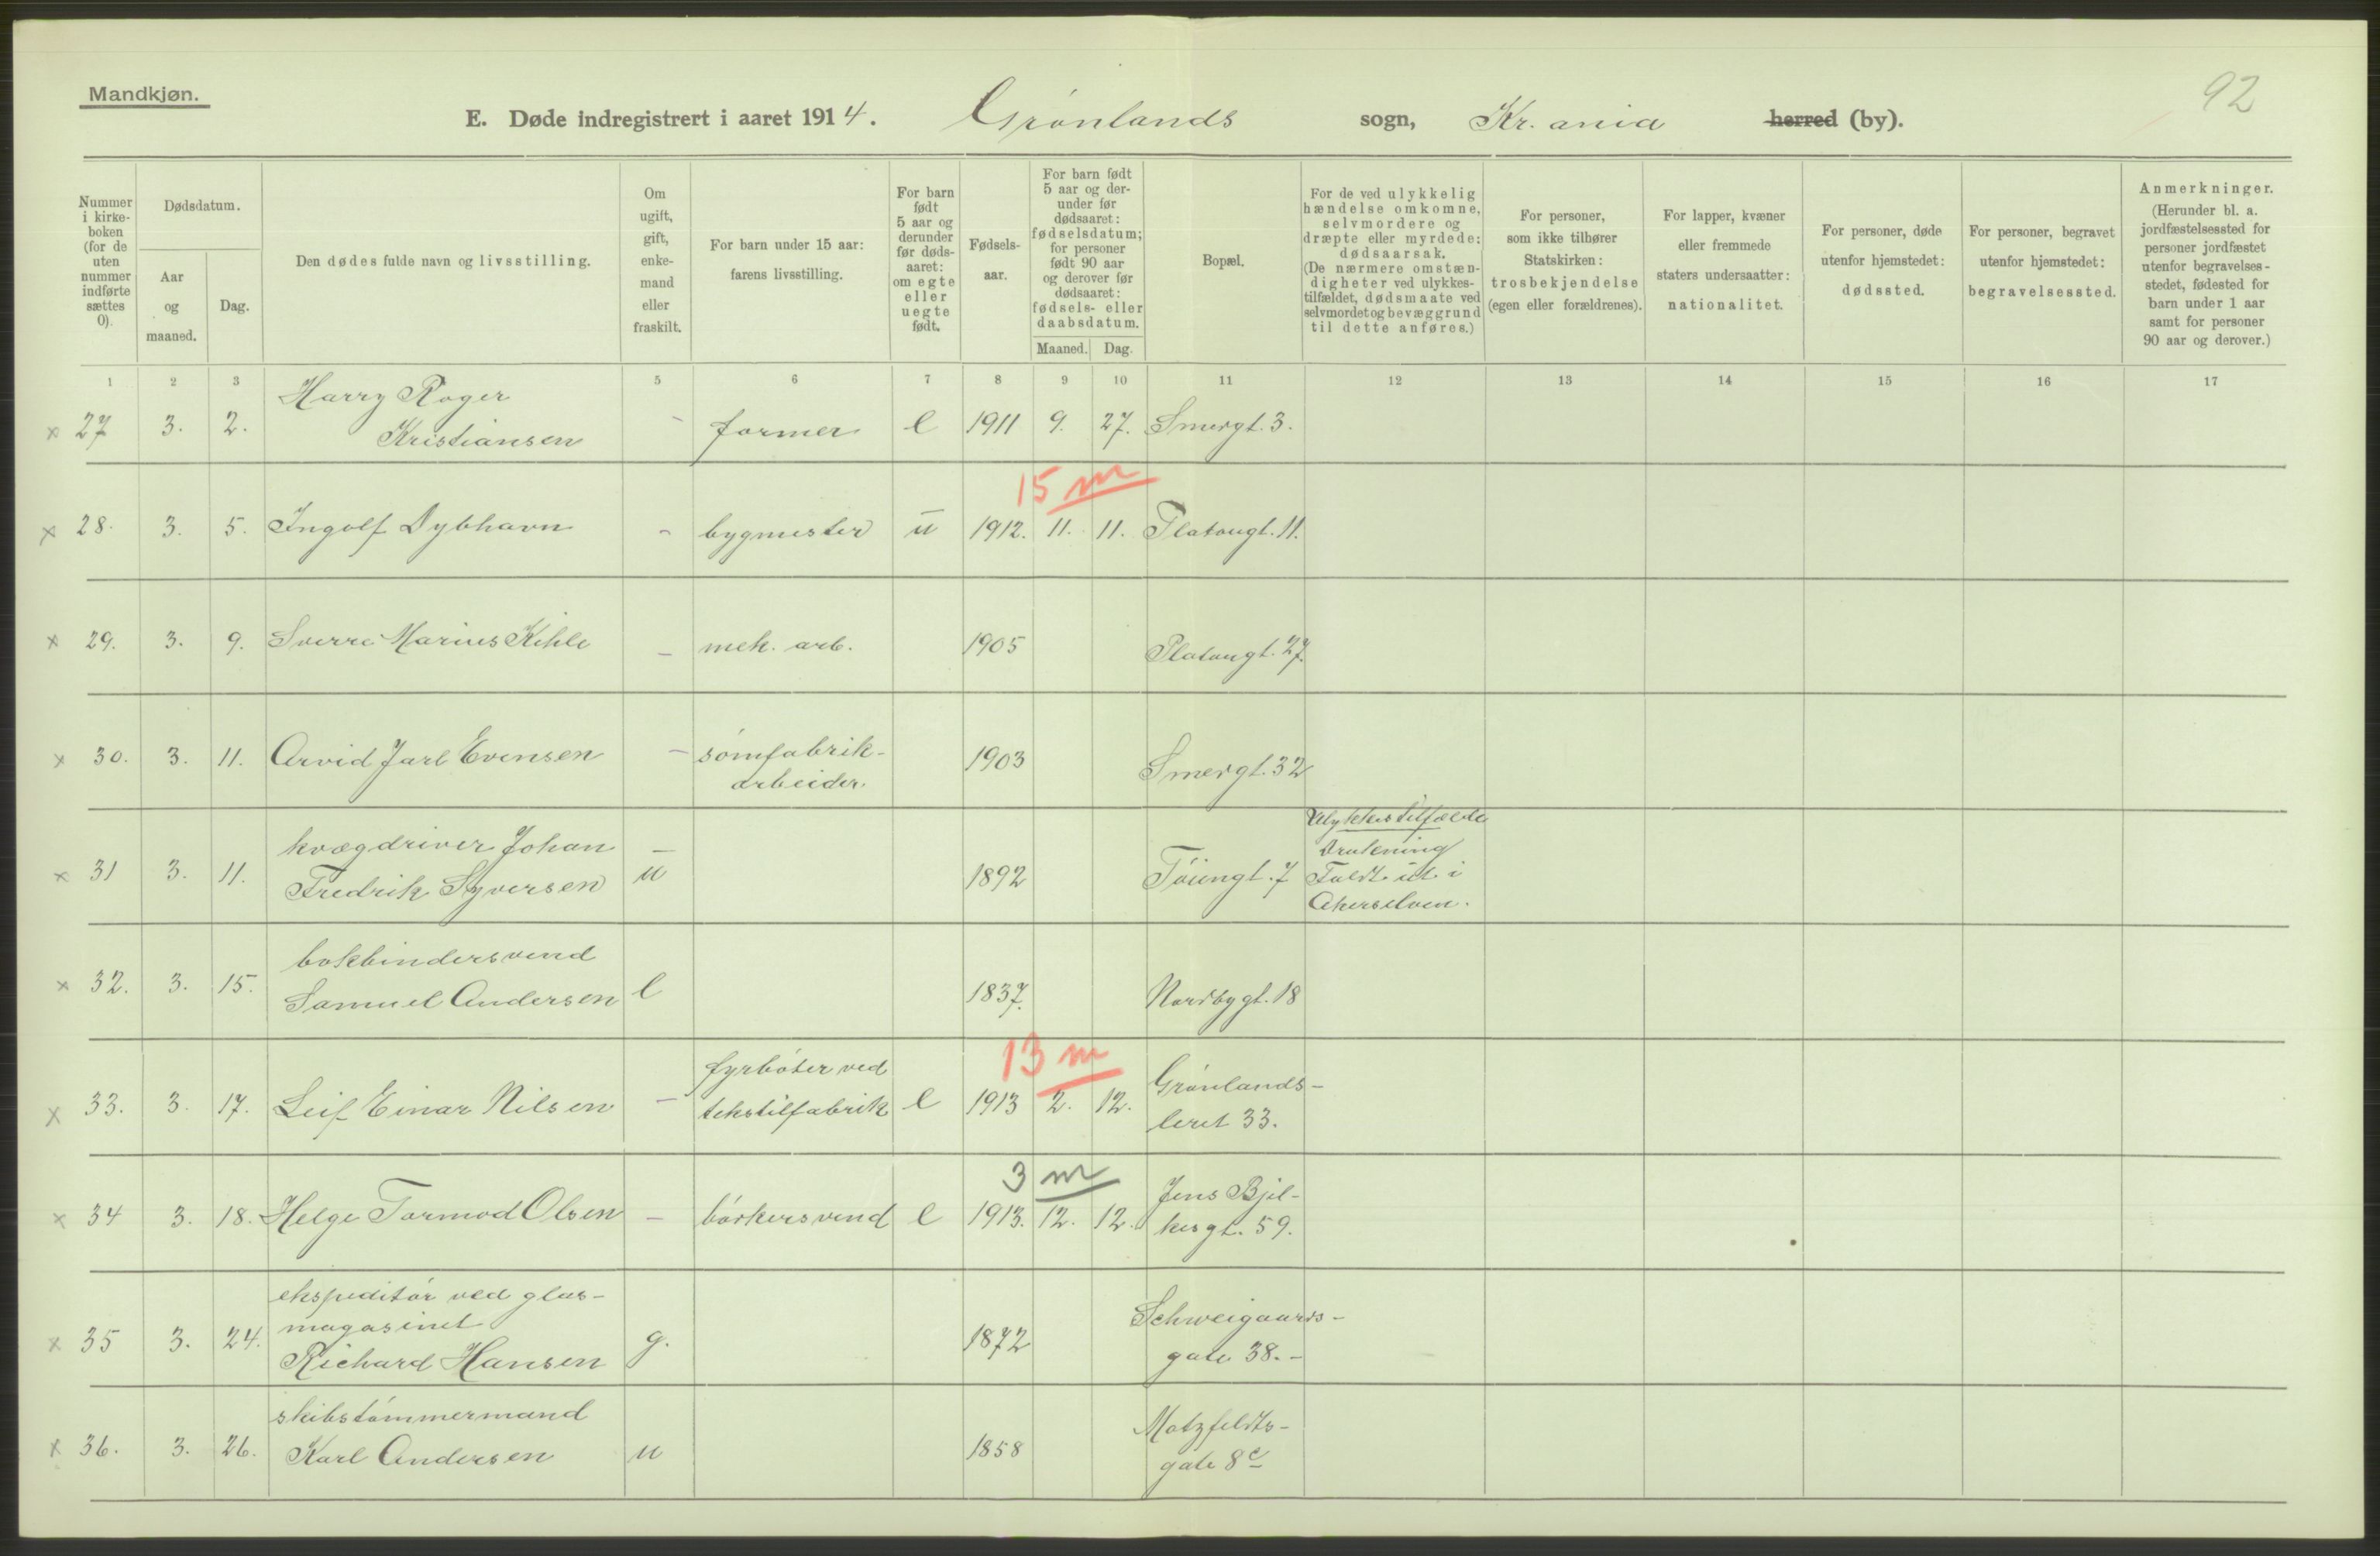 Mandkjøn.
92
E. Døde indregistrert i aaret 1914. Grønlands sogn, Kr.ania herred (by).
Nummer i kirkeboken (for de uten nummer indførte sættes 0).
Dødsdatum.
Aar og maaned.
Dag.
Den dødes fulde navn og livsstilling.
Om ugift, gift, enkemand eller fraskilt.
For barn under 15 aar: farens livsstilling.
For barn født 5 aar og derunder før dødsaaret: om egte eller uegte født.
Fødselsaar.
For barn født 5 aar og derunder før dødsaaret: fødselsdatum; for personer født 90 aar og derover før dødsaaret: fødsels- eller daabsdatum.
Maaned. Dag.
Bopæl.
For de ved ulykkelig hændelse omkomne, selvmordere og dræpte eller myrdede: dødsaarsak. (De nærmere omstændigheter ved ulykkestilfældet, dødsmaate ved selvmordet og bevæggrund til dette anføres.)
For personer, som ikke tilhører Statskirken: trosbekjendelse (egen eller forældrenes).
For lapper, kvæner eller fremmede staters undersaatter: nationalitet.
For personer, døde utenfor hjemstedet: dødssted.
For personer, begravet utenfor hjemstedet: begravelsessted.
Anmerkninger. (Herunder bl. a. jordfæstelsessted for personer jordfæstet utenfor begravelsesstedet, fødested for barn under 1 aar samt for personer 90 aar og derover.)
1 2 3 5 6 7 8 9 10 11 12 13 14 15 16 17
x 27 3. 2. Harry Roger Kristiansen - former e 1911 9. 27. Smergt. 3.
15 m
x 28. 3. 5. Ingolf Dybhavn - bygmester u 1912. 11. 11. Platougt. 11.
x 29. 3. 9. Sverre Marius Kihle - mek. arb. 1905 Platougt. 27.
x 30. 3. 11. Arvid Jarl Evensen - sømfabrik-arbeider. 1903 Smergt. 32
x 31 3. 11. kvægdriver Johan Fredrik Syversen u 1892 Töiengt. 7 Ulykkestilfælde Drukning Faldt ut i Akerselven.
x 32. 3. 15. bokbindersvend Samuel Andersen e 1837. Nordbygt. 18
13 m
x 33. 3. 17. Leif Einar Nilsen - fyrbøter ved tekstilfabrik e 1913 2. 12. Grønlands-leret 33.
3 m
x 34 3. 18. Helge Tormod Olsen - børkersvend e 1913. 12. 12. Jens Bjel-kesgt. 59.
x 35 3. 24. ekspeditør ved glas-magasinet Richard Hansen g. 1872 Schweigaards-gate 38. -
x 36. 3. 26. skibstømmermand Karl Andersen u 1858 Motzfeldts-gate 8c